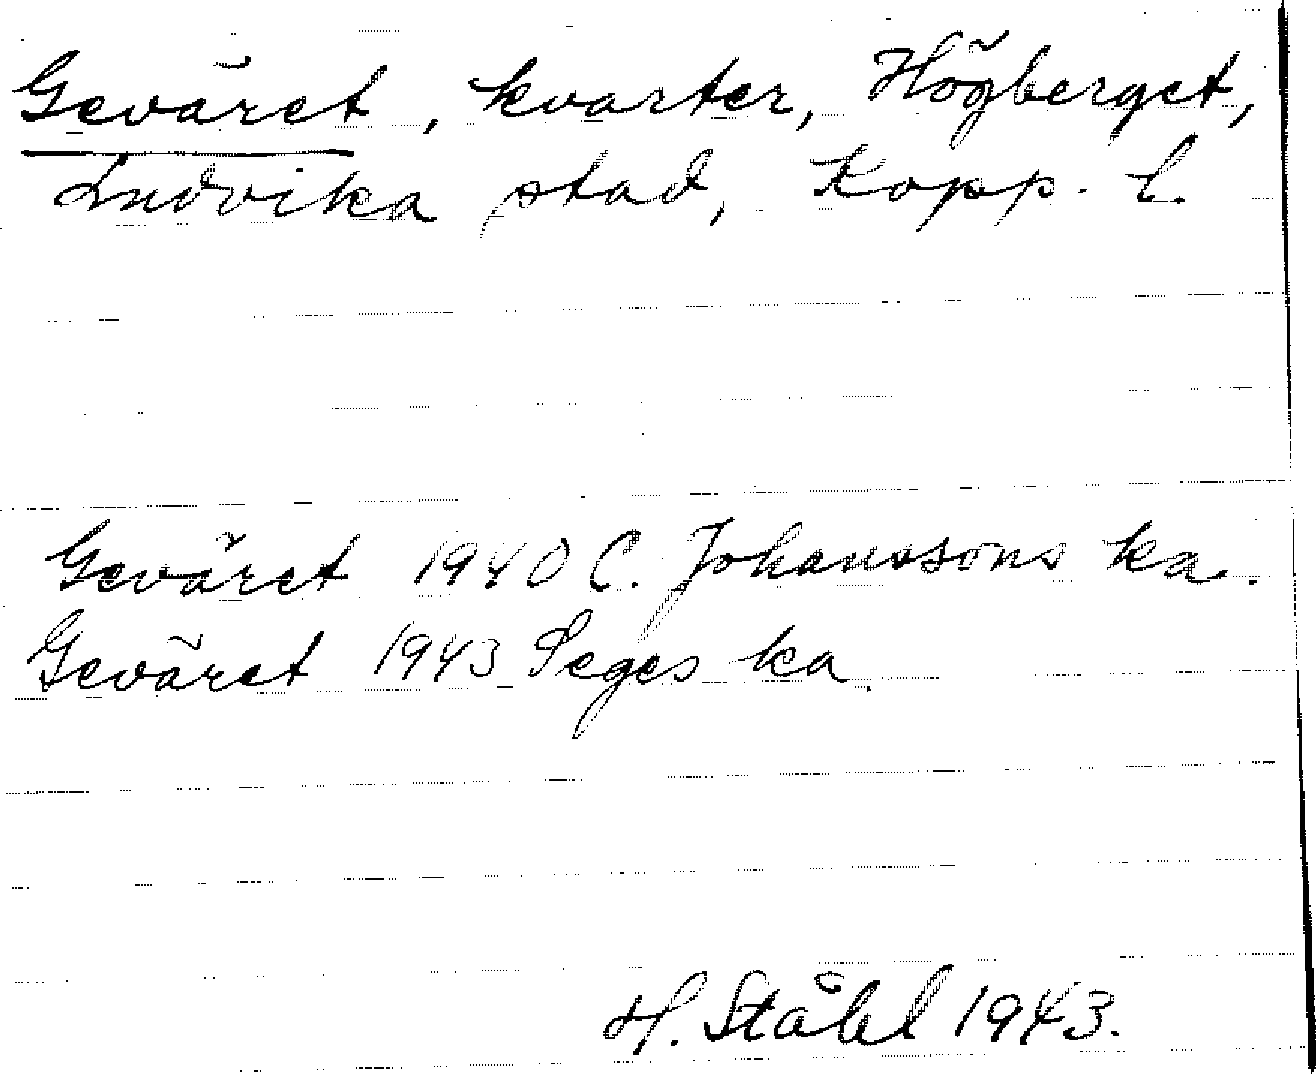 Geväret, kvarter, Högberget,
Ludvika stad, Kopp. l.
Geväret 1940 C. Johanssons ka.
Geväret 1943 Seges ka
H. Ståhl 1943.